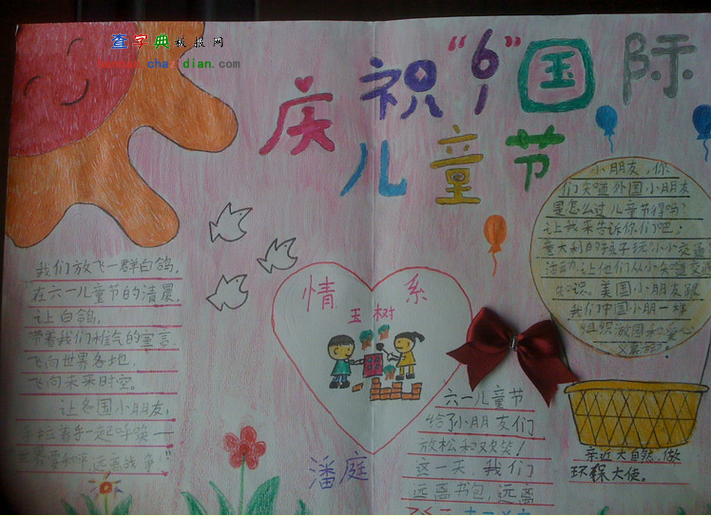 查字典板报网
chazidian.com
庆祝“6/1”国际
儿童节
我们放飞一群白鸽,
在六一儿童节的清晨,
让白鸽,
带着我们稚气的宣言
飞向世界各地,
飞向未来时空。
让各国小朋友,
手拉着手一起呼唤——
世界要和平,远离战争!”
情系
玉树
潘庭
六一儿童节
给小朋友们
放松和欢笑!
这一天,我们
远离书包,远离
小朋友,你
们知道外国小朋友
是怎么过儿童节得吗?
让我来告诉你们吧:
意大利的孩子玩“小小交通”
活动,让他们从小知道交通
知识。美国小朋友跟
我们中国小朋一样
组织
亲近大自然,做
环保大使。